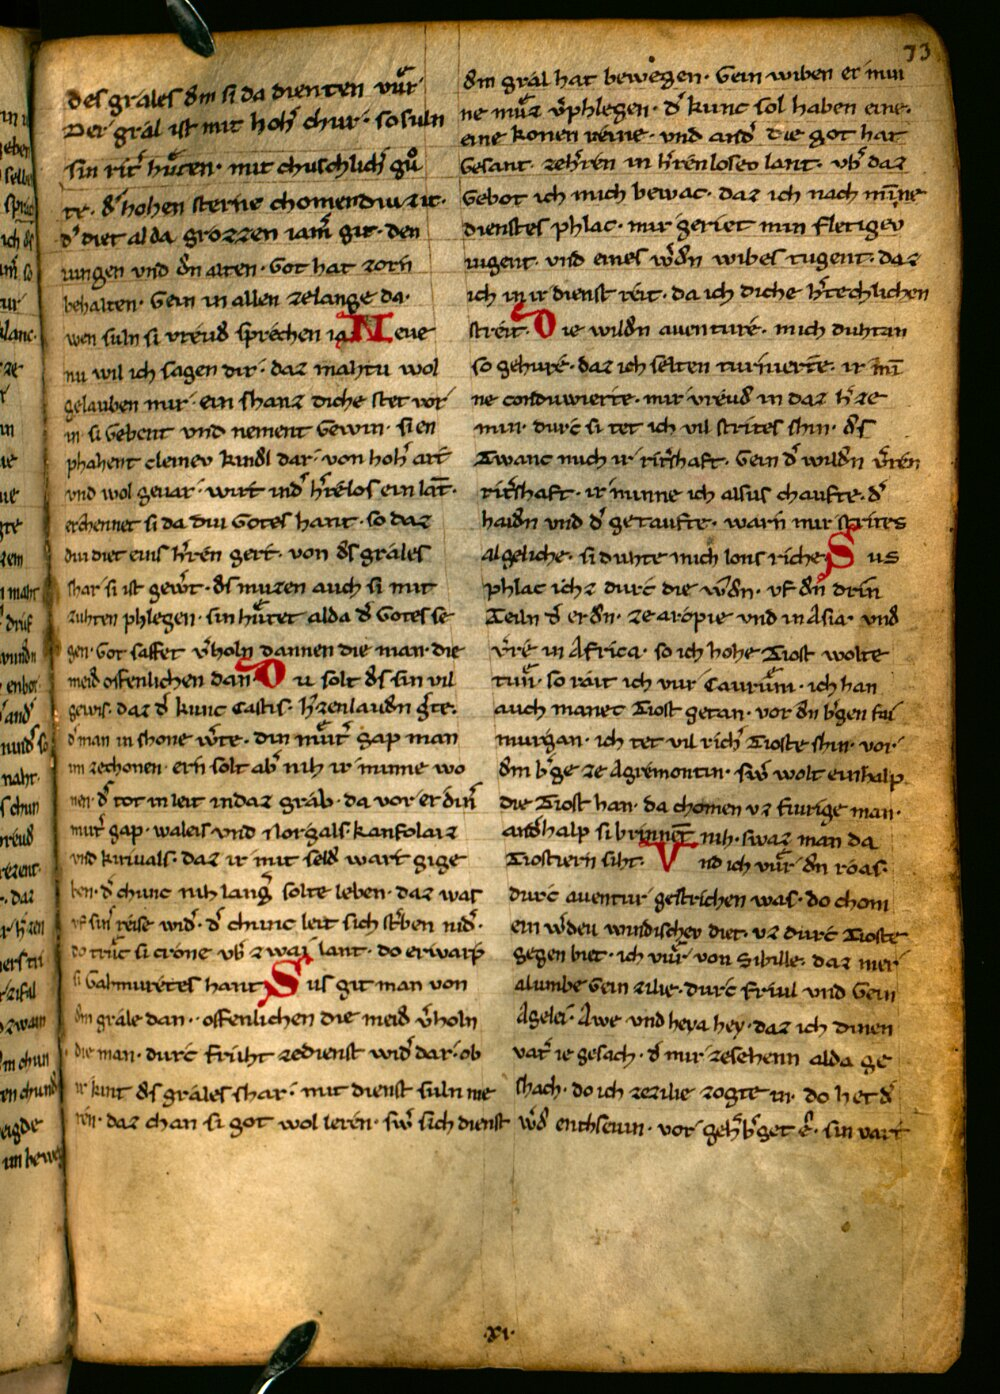 73
des grales dem si da dienten vuͤr
Der gral ist mit hoher chur · so suln
sin riter huͤten · mit chuschlicher guͦ
te · der hohen sterne chomendiu zit ·
der diet al da grozzen iamer git · den
iungen vnd den alten · Got hat zorn
behalten · Gein in allen zelange da ·
wen suln si vreude sprechen ia Neue
nu wil ich sagen dir · daz mahtu wol
gelauben mir · ein shanz diche stet vor
in si Gebent vnd nement Gewin · si en
phahent cleineu kindel dar · von hoher art
vnd wol gevar · wirt inder herrelos ein lant ·
erchennet si da diu Gotes hant · so daz
diu diet eins herren gert · von des grales
shar si ist gewert · des muzen auch si mit
zuhten phlegen · sin huͤtet alda der Gotes se
gen · Got shaffet verholn dannen die man · die
meide offenlichen dan · Du solt des sin vil
gewis · daz der kunc Castis · herzenlauden gerte ·
der man in shone werte · din muͤter gap man
im zechonen · ern solt aber niht ir minne wo
nen · der tot in leit indaz grab · da vor er diner
muter gap · waleis · vnd Norgals · kanfolaiz
vnd kirivals · daz ir mit selden wart gige
ben · der chunc niht langer solte leben · daz was
vf siner reise wider · der chunc leit sich sterben nider ·
do truͦc si crone vber zwai lant · do erwarp
si Gahmuretes hant Sus git man von
dem grale dan · offenlichen die meide verholn
die man · durc fruht zedienst wider dar · ob
ir kint des grales shar · mit dienst suln me
ren · daz chan si got wol leren · swer sich dienst
dem gral hat bewegen · Gein wiben er min
ne muͤz verphlegen · der kunc sol haben eine ·
eine konen reine · vnd ander die got hat
Gesant · zeherren in herrenloseu lant · vber daz
Gebot ich mich bewac · daz ich nach minne
dienstes phlac · mir geriet min fletigev
iugent · vnd eines werden wibes tugent · daz
ich in ir dienst reit · da ich diche hertechlichen
streit · Die wilden auenture · mich duhtan
so gehure · daz ich selten turnierte · ir min
ne condwierte · mir vreude in daz herze
min · durc si tet ich vil strites shin · des
Twanc mich ir riterschaft · Gein der wilden verren
ritershaft · ir minne ich alsus chaufte · der
haiden vnd der getaufte · warn mir strites
al geliche · si duhte mich lons riche Sus
phlac ichz durc die werden · vf den drin
Teiln der erden · ze aropie vnd in Asia · vnd
verre in Africa · so ich hohe Tiost wolte
tuͤn · so rait ich vur Gauruͤn · ich han
auch manec Tiost getan · vor den bergen fai
murgan · ich tet vil richer Tioste shin · vor
dem berge ze Agremontin · swer wolt einhalp
die Tiost han · da chomen vz fiurige man ·
anderhalp si brinnent niht · swaz man da
Tiostiern siht · Vnd ich vuͤr den roas ·
durc auentiur gestrichen was · do chom
ein werdeu windischev diet · vz durc Tioste
gegen biet · ich vuͤr von Sibille · daz mer
alumbe Gein zilie · durc friul vnd Gein
Agelei · Awe vnd heya hey · daz ich dinen
vater ie gesach · der mir zesehenn alda ge
shach · do ich zezilie zogte in · do het der
werde enthsevin · vor geherberget e · sin vart
·xi·